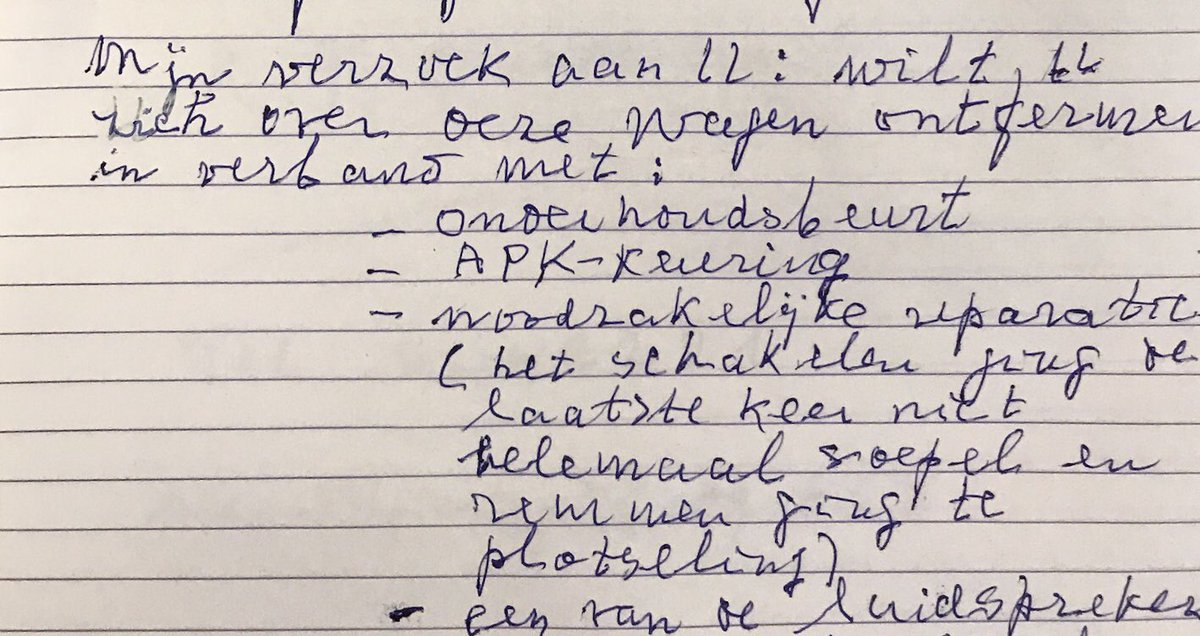 Mijn verzoek aan U: wilt U
zich over deze wagen ontfermen
in verband met:
- onderhoudsbeurt
- APK-keuring
- noodzakelijke reparatie
(het schakelen ging de
laatste keer niet
helemaal soepel en
remmen ging te
plotseling)
- een van de luidspreker